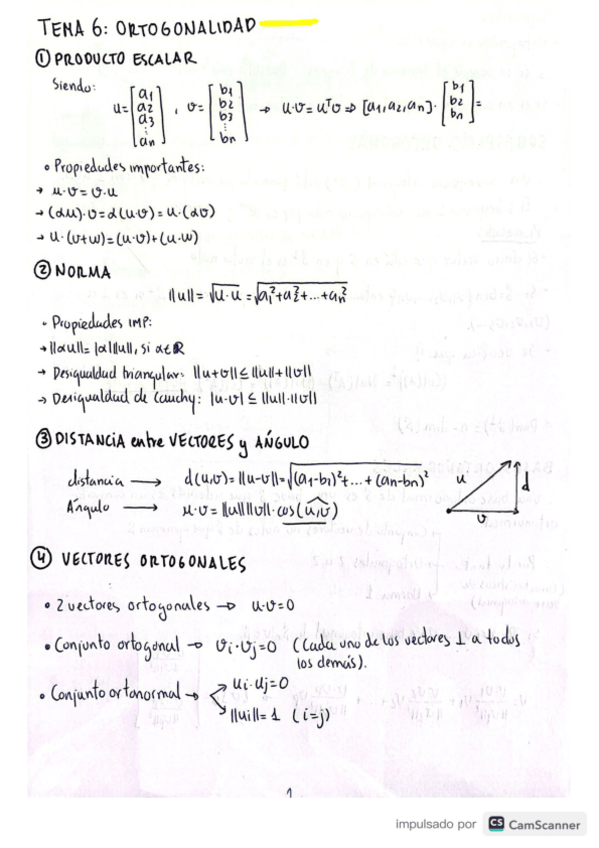 TEMA 6: ORTOGONALIDAD
① PRODUCTO ESCALAR
Siendo: u = [a1 a2 a3 ⋮ an], v = [b1 b2 b3 ⋮ bn] → u·v = uᵀv ⇒ [a1, a2, an]·[b1 b2 bn] =
• Propiedades importantes:
→ u·v = v·u
→ (αu)·v = α(u·v) = u·(αv)
→ u·(v+w) = (u·v)+(u·w)
② NORMA
||u|| = √u·u = √a1²+a2²+...+an²
• Propiedades IMP:
→ ||αu|| = |α|||u||, si α∈ℝ
→ Desigualdad triangular: ||u+v|| ≤ ||u||+||v||
→ Desigualdad de Cauchy: |u·v| ≤ ||u||·||v||
③ DISTANCIA entre VECTORES y ÁNGULO
distancia → d(u,v) = ||u-v|| = √(a1-b1)²+...+(an-bn)²
Ángulo → u·v = ||u||||v||·cos(u,v)
u d
v
④ VECTORES ORTOGONALES
• 2 vectores ortogonales → u·v=0
• Conjunto ortogonal → vi·vj=0 (Cada uno de los vectores ⊥ a todos
los demás).
• Conjunto ortonormal → ui·uj=0
||ui||=1 (i=j)
1
impulsado por CS CamScanner